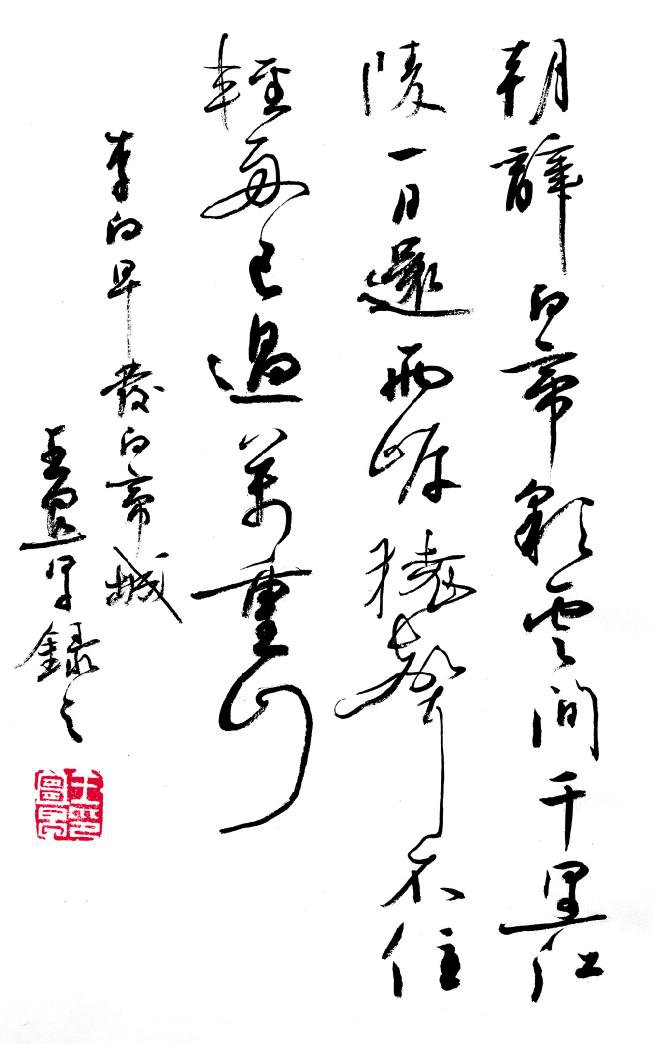 朝辭白帝彩雲間千里江
陵一日還兩岸猿聲不住
輕舟已過萬重山
李白早發白帝城
王軍錄之